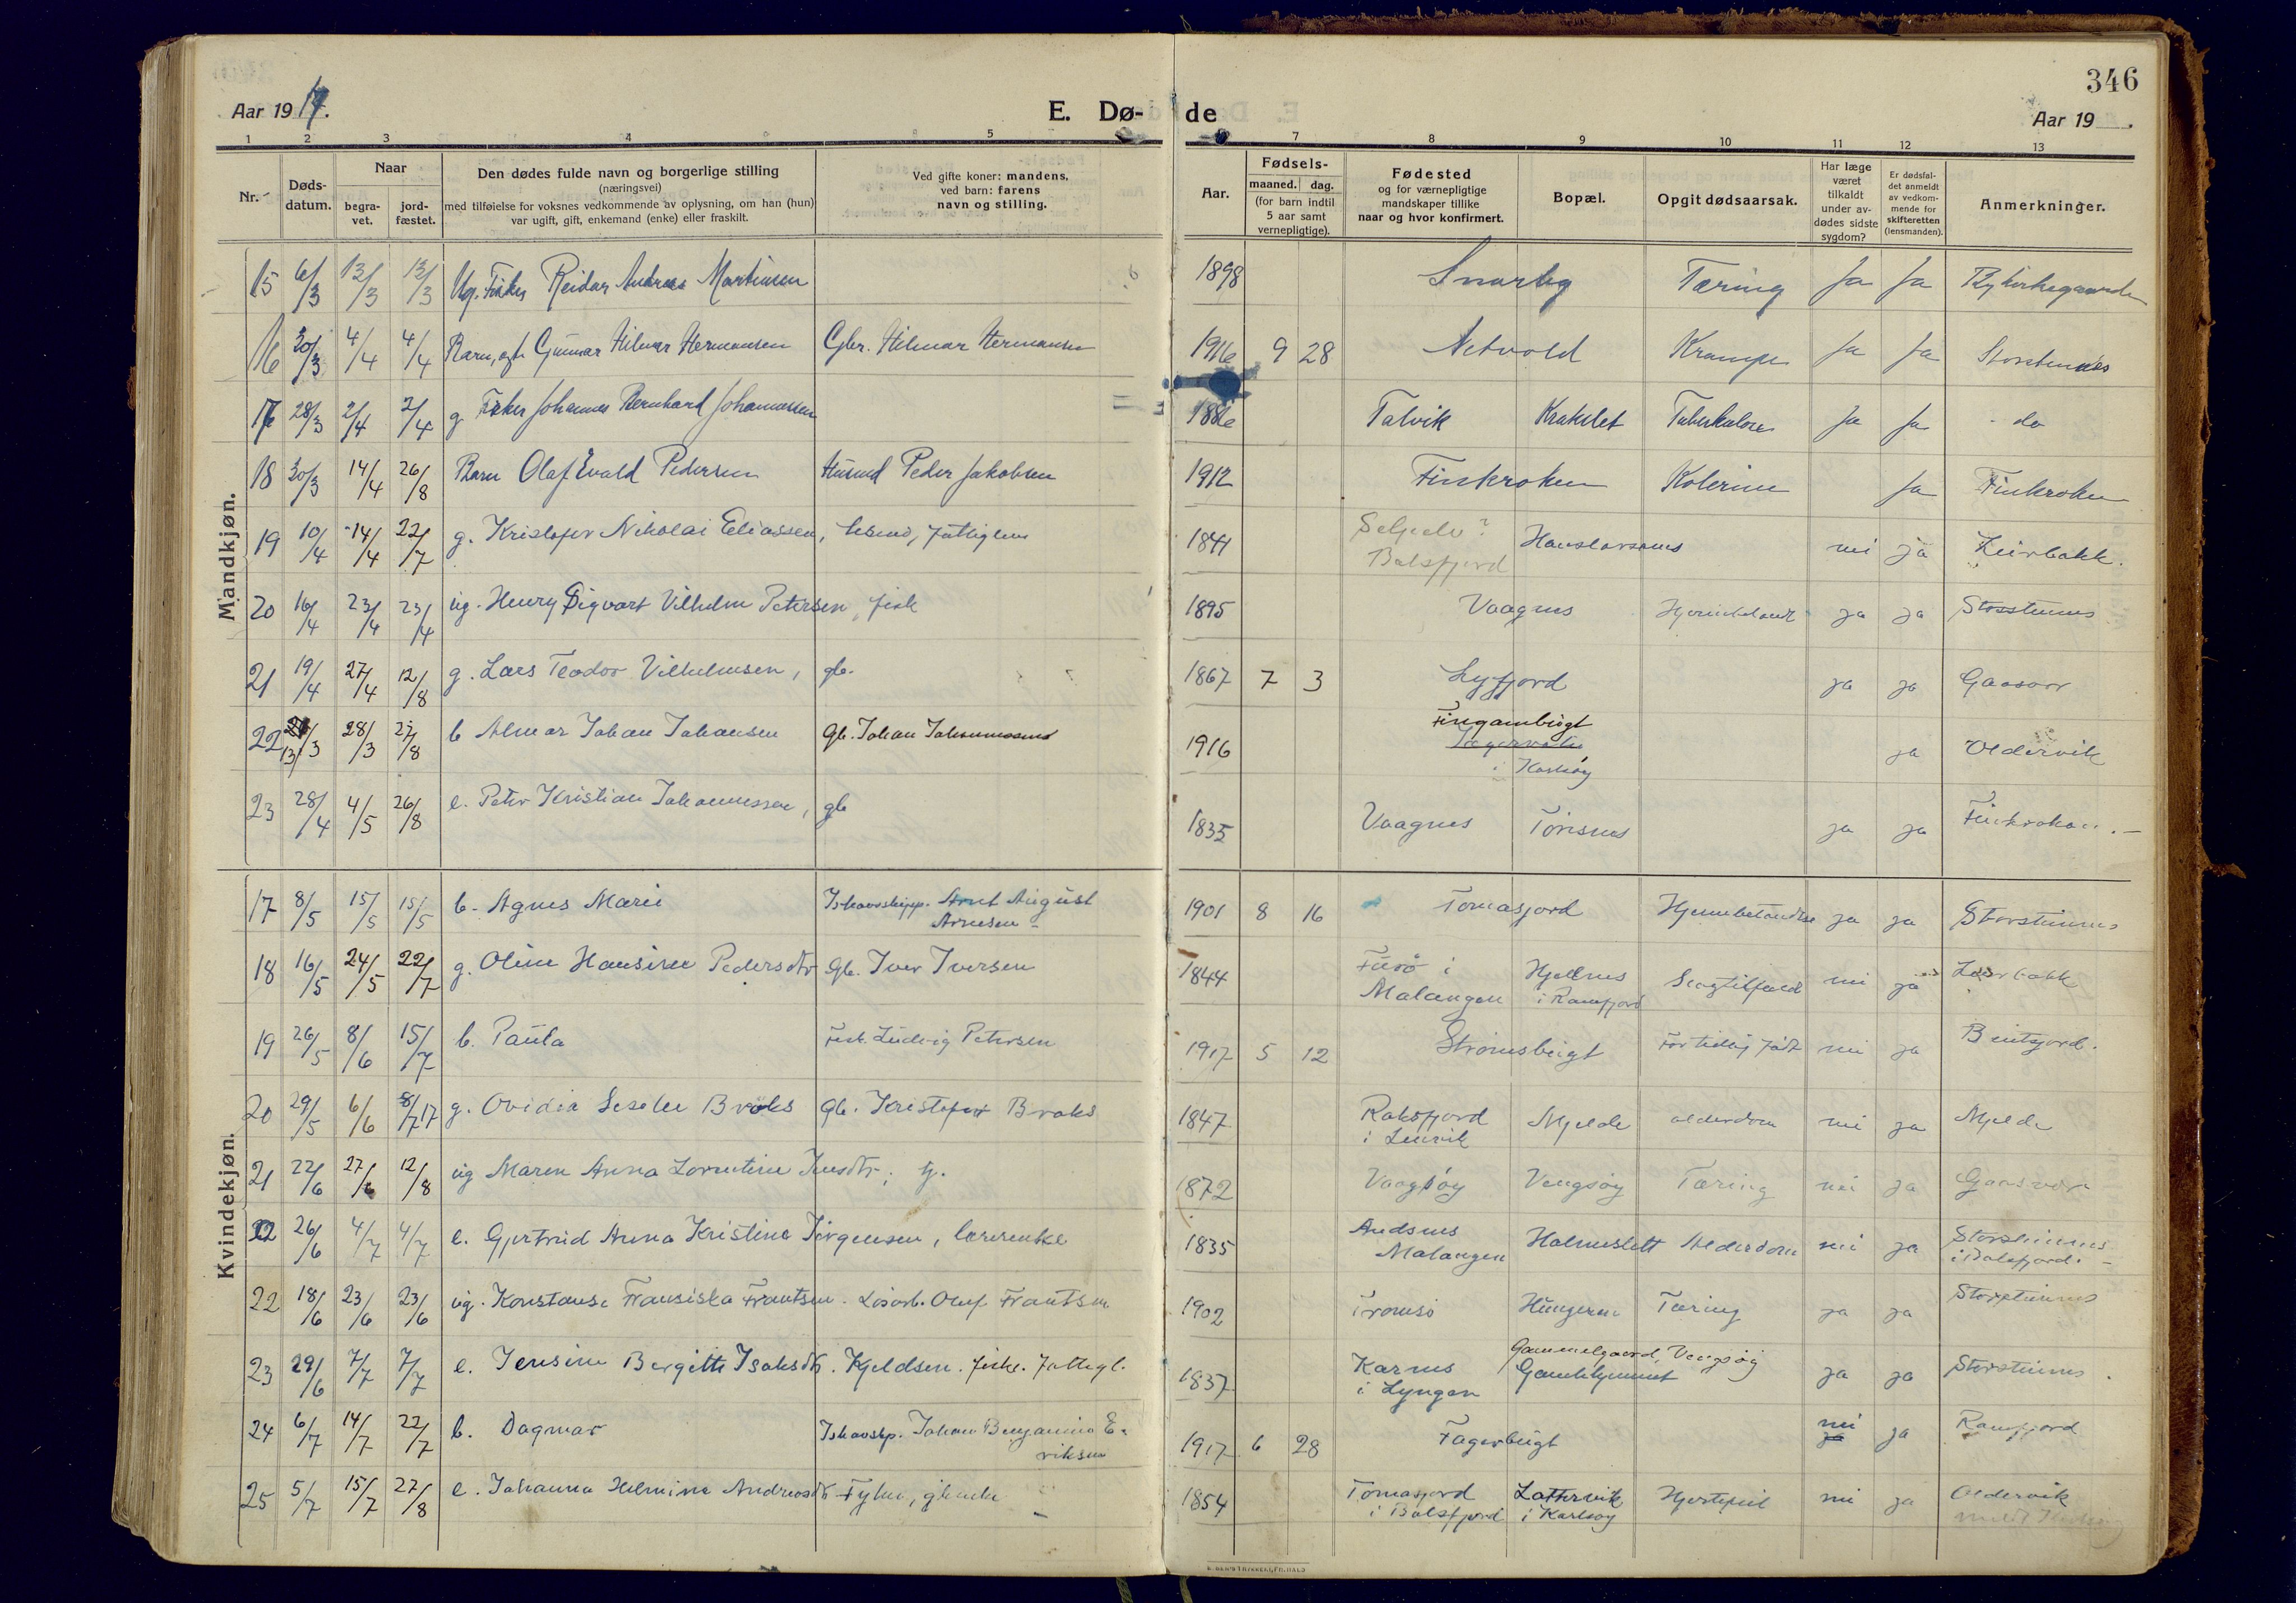 346
Aar 1917. E. Dø- de Aar 19
1 2 3 4 5 6 7 8 9 10 11 12 13
Nr. Døds-datum. Naar begra-vet. jord-fæstet. Den dødes fulde navn og borgerlige stilling (næringsvei) med tilføielse for voksnes vedkommende av oplysning, om han (hun) var ugift, gift, enkemand (enke) eller fraskilt. Ved gifte koner: mandens, ved barn: farens navn og stilling. Aar. Fødsels- maaned. dag. (for barn indtil 5 aar samt vernepligtige). Fødested og for værnepligtige mandskaper tillike naar og hvor konfirmert. Bopæl. Opgit dødsaarsak. Har læge været tilkaldt under av-dødes sidste sygdom? Er dødsfal-det anmeldt av vedkom-mende for skifteretten (lensmanden). Anmerkninger.
Mandkjøn.
15 6/3 13/3 13/3 Ug. Fisker Reidar Andreas Martinsen 1898 Snarby Tæring Ja Ja
16 30/3 4/4 4/4 Barn, egte Gunnar Hilmar Hermansen Gbr. Hilmar Hermansen 1916 9 28 Krampe Ja Ja Storstennes
17 28/3 2/4 2/4 g Fisker Johannes Bernhard Johannessen 1886 Talvik Krokelet Tuberkulose Ja Ja - do
18 30/3 14/4 26/8 Barn Olaf Evald Pedersen Husmd Peder Jakobsen 1912 Finkroken Kolerine Ja Finkroken
19 10/4 14/4 22/7 g. Kristofer Nikolai Eliassen, fattiglem 1841 Selpelv? Balsfjord nei ja Leirbakk.
20 16/4 23/4 23/4 ug. Henry Sigvart Vilhelm Petersen, fisk 1895 Vaagnes ja ja Storstennes
21 19/4 27/4 12/8 g. Lars Teodor Vilhelmsen, gb. 1867 7 3 Lyfjord ja ja Gaasvær
22 13/3 28/3 27/8 b Almar Johan Johansen Gb. Johan Johannessen 1916 i Karlsøy ja Oldervik
23 28/4 4/5 26/8 e. Peter Kristian Johannessen, gb 1835 Vaagnes Tønsnes ja ja Finkroken.-
Kvindekjøn.
17 8/5 15/5 15/5 b. Agnes Marie Ishavsskipp. Arnt August Arnesen 1901 8 16 Tomasjord Hjernebetændelse ja ja Storstennes
18 16/5 24/5 22/7 g. Oline Hansine Pedersdtr Gb. Iver Iversen 1844 Malangen i Ramfjord Slagtilfæld nei ja Leirbakk
19 26/5 8/6 15/7 b. Paula Fisk. Ludvig Petersen 1917 5 12 Strømsbugt For tidlig født nei ja
20 29/5 6/6 8/7 17 g. Ovidia Broks Gb. Kristofer Broks 1847 Roksfjord i Lenvik Mjelde alderdom nei ja Mjelde
21 22/6 27/6 12/8 ug Maren Anna Lorentine Jensdtr; tj. 1872 Vengsøy Tæring nei ja Gaasvær
22 26/6 4/7 4/7 e. Gjertrud Anna Kristine Jørgensen, lærerenke 1835 Andsnes Malangen Holmeslett Alderdom nei ja Storstennes i Balsfjord.-
22 18/6 23/6 23/6 ug. Konstanse Fransiska Frantsen. Løsarb. Oluf Frantsen 1902 Tromsø Hungeren Tæring ja ja Storstennes
23 29/6 7/7 7/7 e. Jensine Bergitte Isaksdtr. Kjeldsen. fiske. fattigl. 1837 Karnes i Lyngen Gammelgaard, Vengsøy Gamlehjemmet ja ja Storstennes.
24 6/7 14/7 22/7 b. Dagmar Ishavssp. Johan Benjamin Eriksen 1917 6 28 Fagerbugt nei ja Ramfjord
25 5/7 15/7 27/8 e. Johanna Helmine Andreasdtr Fyhn, gbenke 1854 Tomasjord i Balsfjord Lattervik i Karlsøy Hjertefeil nei ja Oldervik